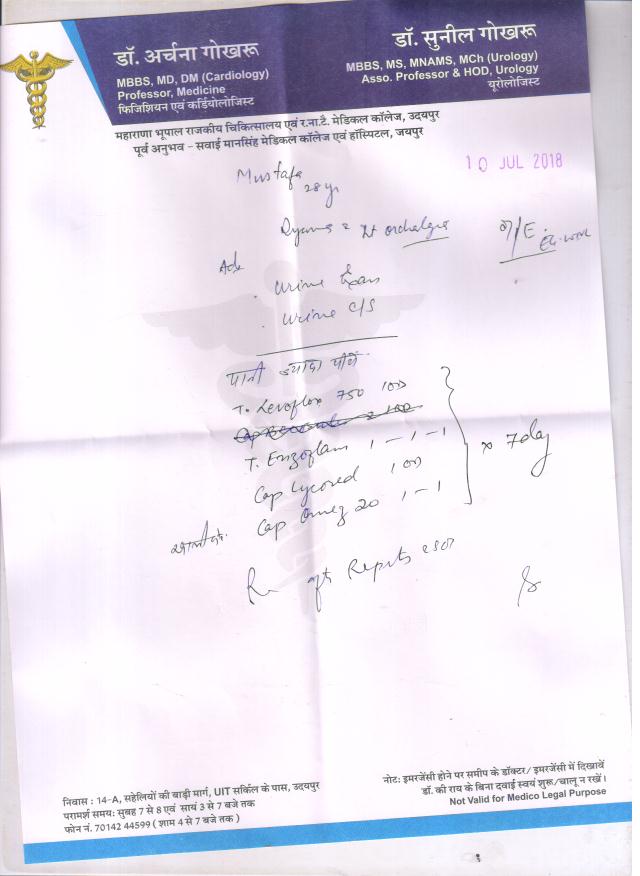 डॉ. अर्चना गोखरू
MBBS, MD, DM (Cardiology)
Professor, Medicine
फिजिशियन एवं कर्डियोलोजिस्ट
डॉ. सुनील गोखरू
MBBS, MS, MNAMS, MCh (Urology)
Asso. Professor & HOD, Urology
यूरोलोजिस्ट
महाराणा भूपाल राजकीय चिकित्सालय एवं र.ना.टै. मेडिकल कॉलेज, उदयपुर
पूर्व अनुभव - सवाई मानसिंह मेडिकल कॉलेज एवं हॉस्पिटल, जयपुर
10 JUL 2018
Mustafa
28 yr
orchalgia O/E
Adv
Urine Exam
Urine C/S
पानी ज्यादा पीयें
T. Levoflox 750 1 OD
T. Enzoflam 1-1-1
Cap Lycored 1 OD
x 7 day
Cap Omez 20 1-1
R aft Reports
निवास : 14-A, सहेलियों की बाड़ी मार्ग, UIT सर्किल के पास, उदयपुर
परामर्श समय: सुबह 7 से 8 एवं सायं 3 से 7 बजे तक
फोन नं. 70142 44599 ( शाम 4 से 7 बजे तक )
नोट: इमरजेंसी होने पर समीप के डॉक्टर/ इमरजेंसी में दिखावें
डॉ. की राय के बिना दवाई स्वयं शुरू/चालू न रखें।
Not Valid for Medico Legal Purpose